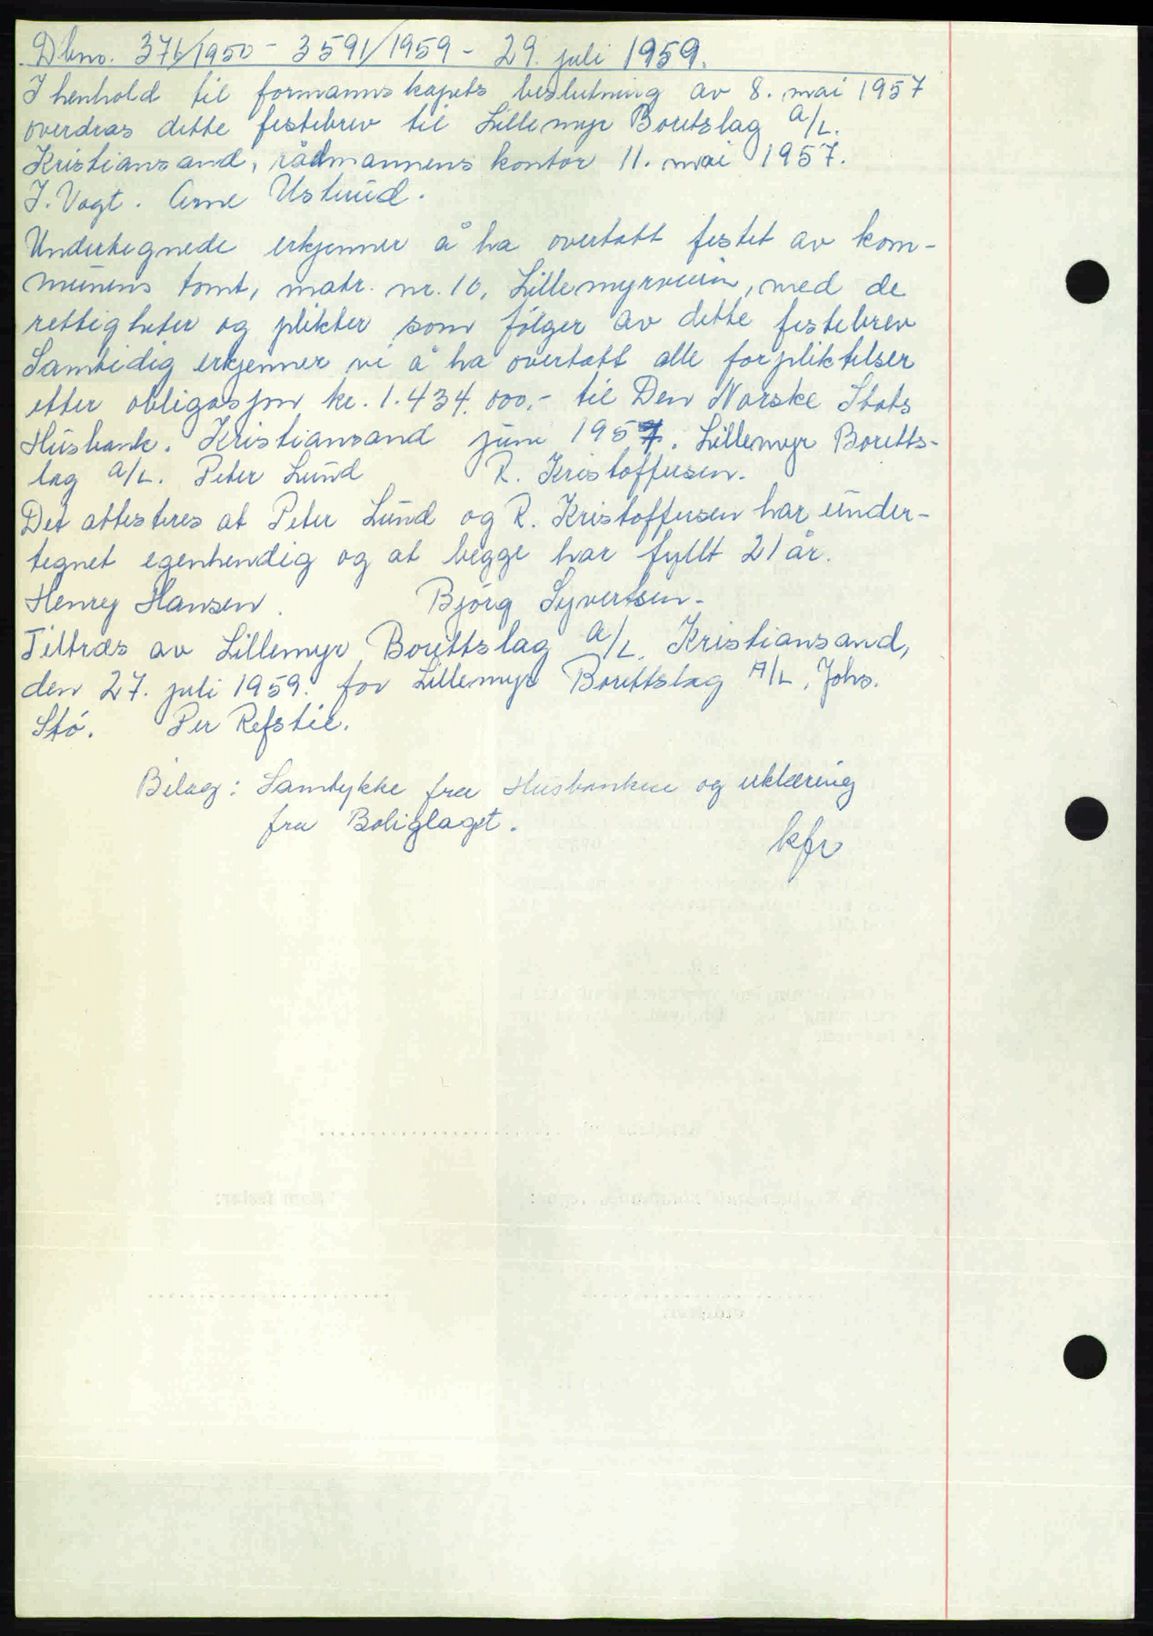 Dbno. 371/1950 - 3591/1959 - 29. juli 1959.
I henhold til formannskapets beslutning av 8. mai 1957
overdras dette festebrev til Lillemyr Borettslag A/L.
Kristiansand, rådmannens kontor 11. mai 1957.
J. Vogt. Arne Ustrud.
Undertegnede erkjenner å ha overtatt festet av kom-
munens tomt, matr. nr. 10, Lillemyrveien, med de
rettigheter og plikter som følger av dette festebrev
Samtidig erkjenner vi å ha overtatt alle forpliktelser
etter obligasjon kr. 1.434.000.- til Den Norske Stats
Husbank. Kristiansand juni 1957. Lillemyr Boretts-
lag A/L. Peter Lund R. Kristoffersen.
Det attesteres at Peter Lund og R. Kristoffersen har under-
tegnet egenhendig og at begge har fyllt 21 år.
Henry Hansen. Bjørg Syvertsen.
Tiltras av Lillemyr Borettslag A/L. Kristiansand,
den 27. juli 1959. for Lillemyr Borettslag A/L. Johs.
Stø. Per Refstie.
Bilag: Samtykke fra Husbanken og erklæring
fra Boliglaget.
kfr